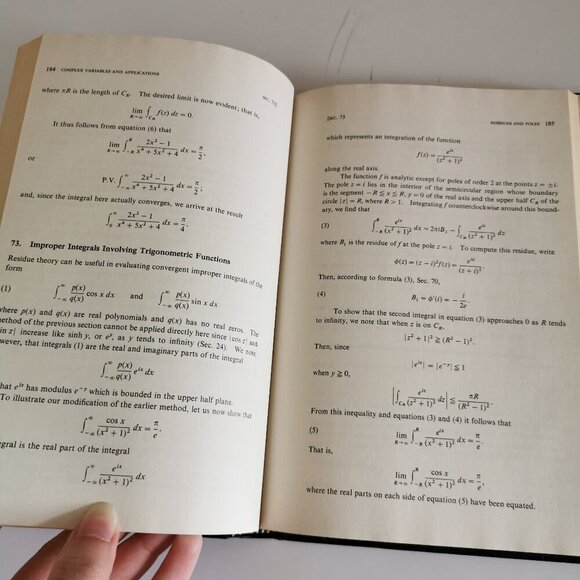 184 COMPLEX VARIABLES AND APPLICATIONS
where πR is the length of C_R. The desired limit is now evident; that is,
lim_{R→∞} ∫_{C_R} f(z) dz = 0.
It thus follows from equation (6) that
lim_{R→∞} ∫_{-R}^{R} (2x² − 1)/(x⁴ + 5x² + 4) dx = π/2,
or
P.V. ∫_{-∞}^{∞} (2x² − 1)/(x⁴ + 5x² + 4) dx = π/2;
and, since the integral here actually converges, we arrive at the result
∫_0^∞ (2x² − 1)/(x⁴ + 5x² + 4) dx = π/4.
73. Improper Integrals Involving Trigonometric Functions
Residue theory can be useful in evaluating convergent improper integrals of the
form
(1) ∫_{-∞}^{∞} p(x)/q(x) cos x dx and ∫_{-∞}^{∞} p(x)/q(x) sin x dx
where p(x) and q(x) are real polynomials and q(x) has no real zeros. The
method of the previous section cannot be applied directly here since |cos z| and
sin z| increase like sinh y, or eʸ, as y tends to infinity (Sec. 24). We note,
however, that integrals (1) are the real and imaginary parts of the integral
∫_{-∞}^{∞} p(x)/q(x) e^{ix} dx
that e^{iz} has modulus e^{−y} which is bounded in the upper half plane.
To illustrate our modification of the earlier method, let us now show that
∫_{-∞}^{∞} cos x/(x² + 1)² dx = π/e.
egral is the real part of the integral
∫_{-∞}^{∞} e^{ix}/(x² + 1)² dx
[SEC. 73 RESIDUES AND POLES 185
which represents an integration of the function
f(z) = e^{iz}/(z² + 1)²
along the real axis.
The function f is analytic except for poles of order 2 at the points z = ±i.
The pole z = i lies in the interior of the semicircular region whose boundary
is the segment −R ≤ x ≤ R, y = 0 of the real axis and the upper half C_R of the
circle |z| = R, where R > 1. Integrating f counterclockwise around this bound-
ary, we find that
(3) ∫_{-R}^{R} e^{ix}/(x² + 1)² dx = 2πiB₁ − ∫_{C_R} e^{iz}/(z² + 1)² dz
where B₁ is the residue of f at the pole z = i. To compute this residue, write
φ(z) = (z − i)²f(z) = e^{iz}/(z + i)².
Then, according to formula (3), Sec. 70,
(4) B₁ = φ′(i) = −i/2e.
To show that the second integral in equation (3) approaches 0 as R tends
to infinity, we note that when z is on C_R,
|z² + 1|² ≧ (R² − 1)².
Then, since
|e^{iz}| = |e^{−y}| ≦ 1
when y ≧ 0,
|∫_{C_R} e^{iz}/(z² + 1)² dz| ≦ πR/(R² − 1)².
From this inequality and equations (3) and (4) it follows that
(5) lim_{R→∞} ∫_{-R}^{R} e^{ix}/(x² + 1)² dx = π/e.
That is,
lim_{R→∞} ∫_{-R}^{R} cos x/(x² + 1)² dx = π/e,
where the real parts on each side of equation (5) have been equated.